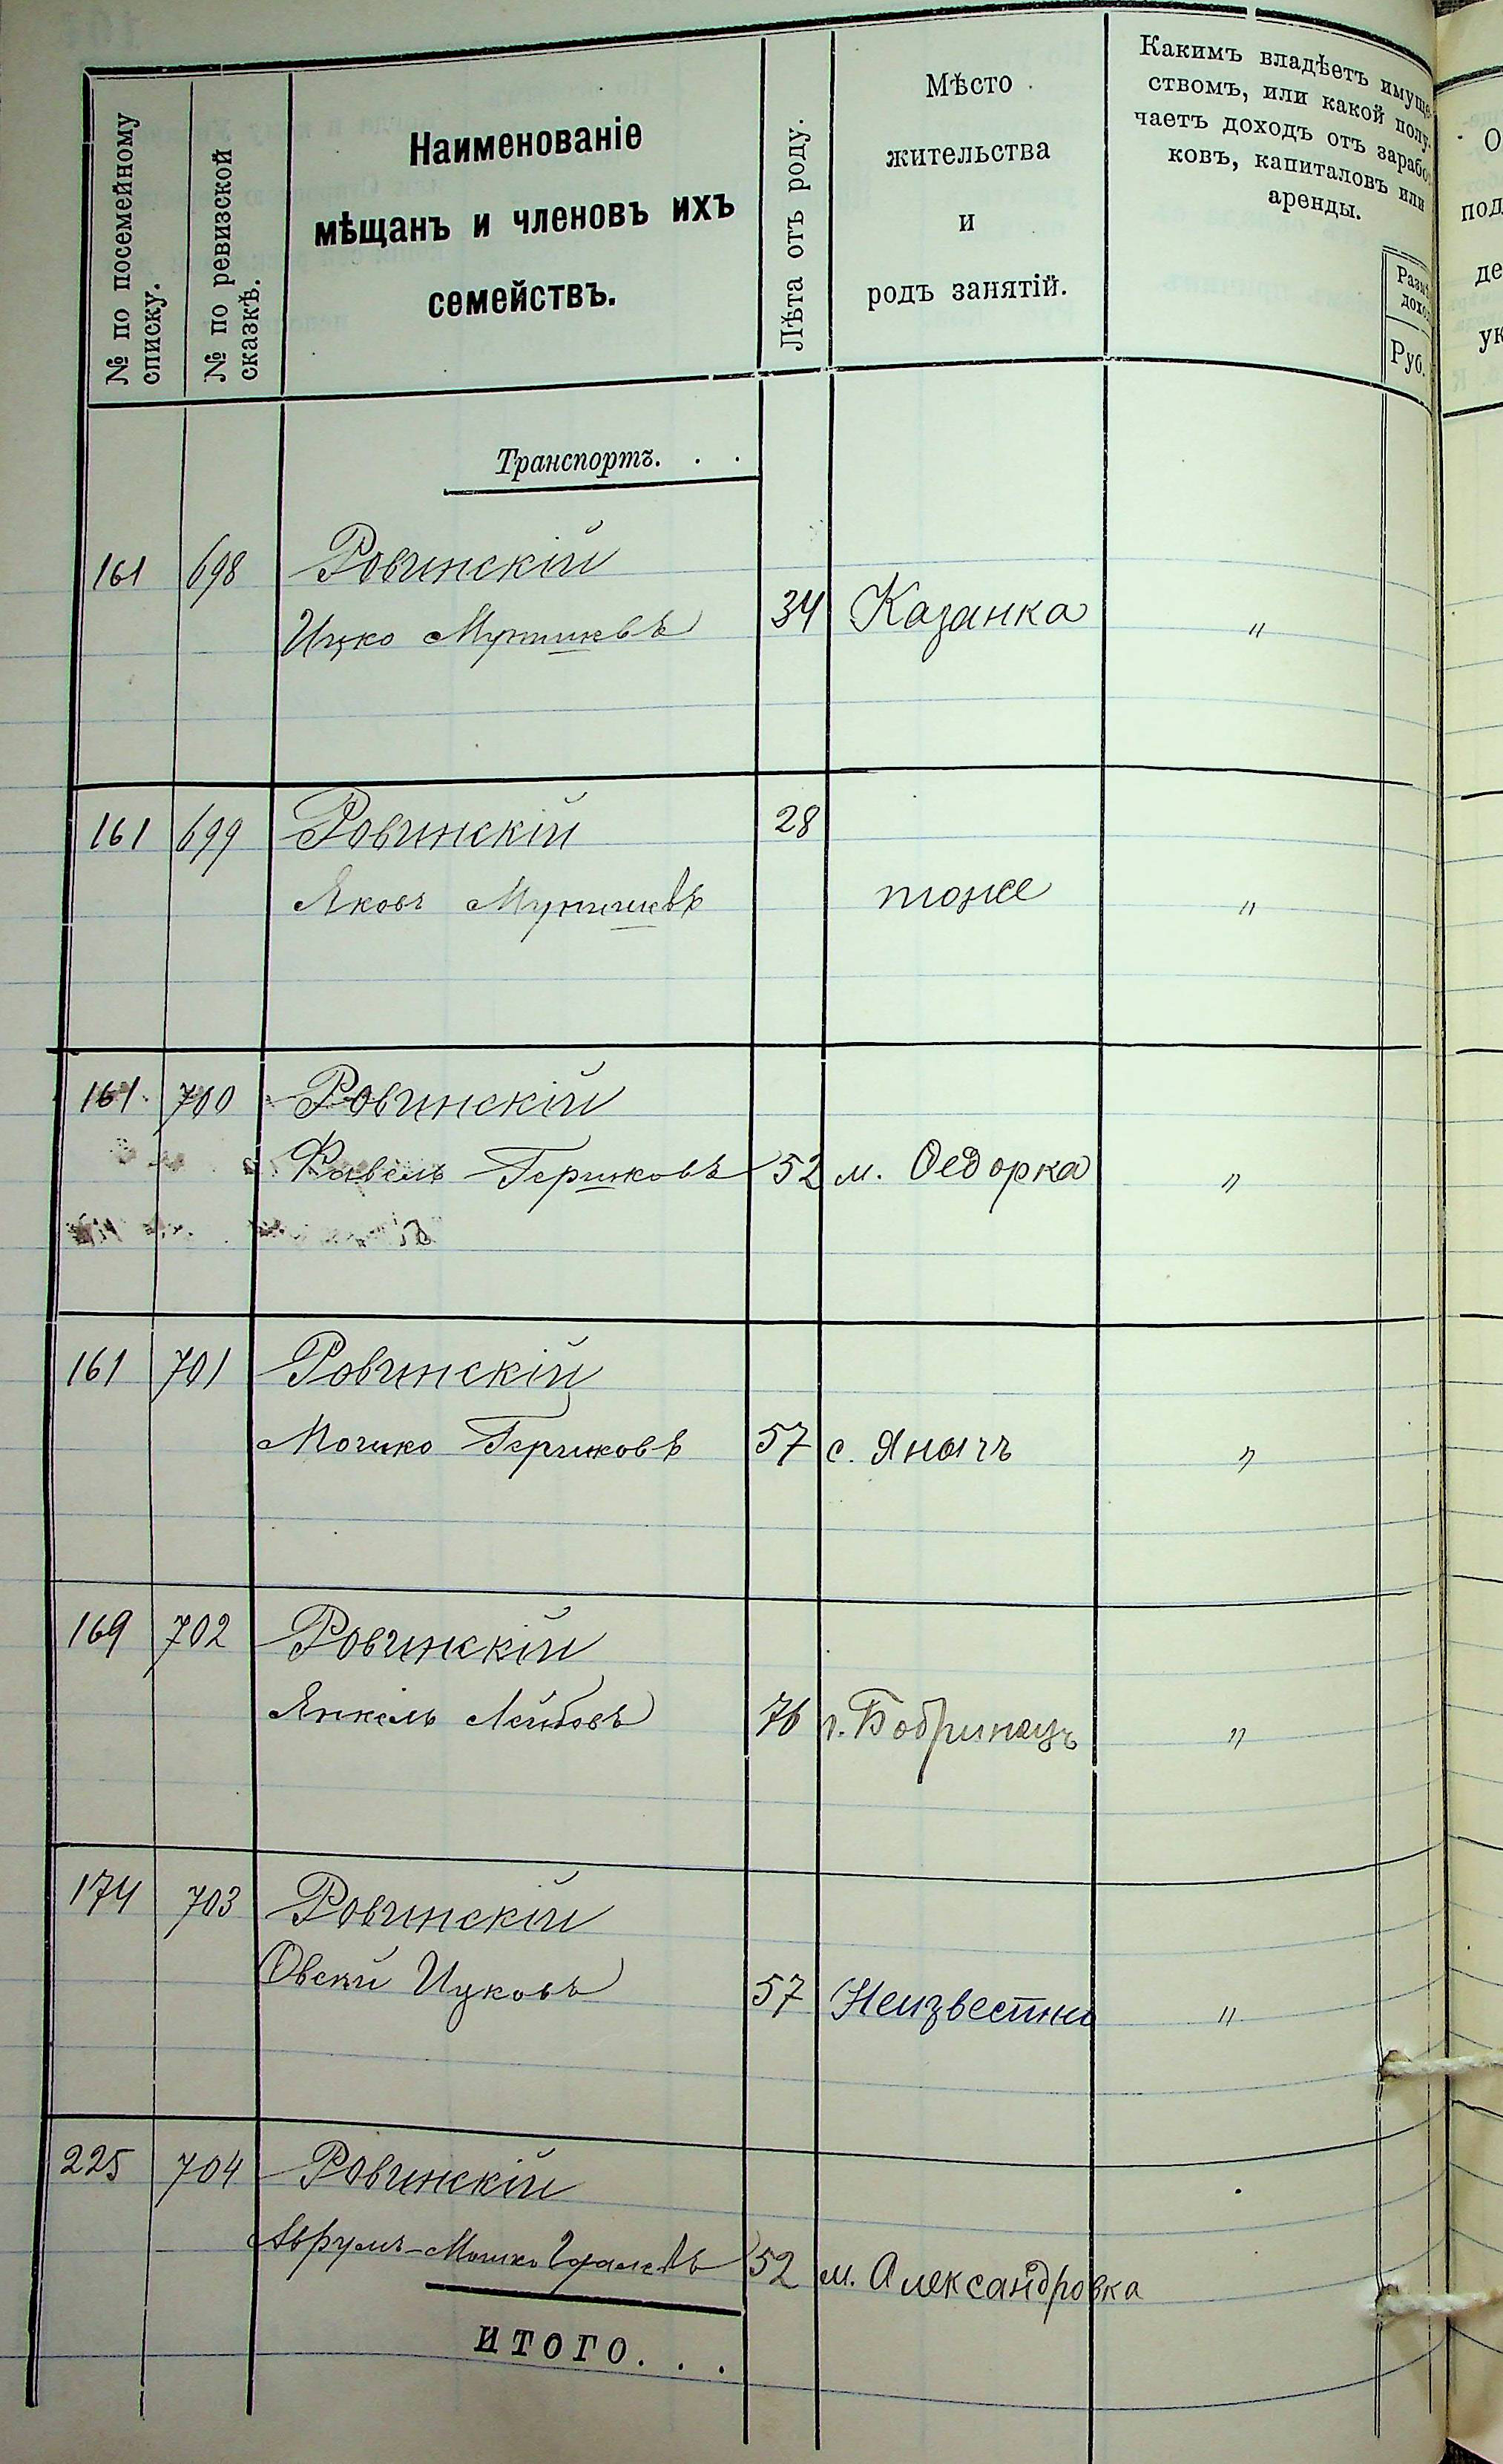 № по посемейному
списку.
№ по ревизской
сказкѣ.
Наименованіе
мѣщанъ и членовъ ихъ
семействъ.
Лѣта отъ роду.
Мѣсто
жительства
и
родъ занятій.
Какимъ владѣетъ имуще-
ствомъ, или какой полу-
чаетъ доходъ отъ зарабо
ковъ, капиталовъ или
аренды.
Разм
дохо
Руб.
Транспортъ. . .
161 698 Ровинскій
Ицко 34 Казанка "
161 699 Ровинскій 28
Яковъ тоже "
161 700 Ровинскій
Гершковъ 52 м. Федорка "
161 701 Ровинскій
Мошко Гершковъ 57 с. Янычъ "
169 702 Ровинскій
Янкель Лейбовъ 76 г. Бобринецъ "
174 703 Ровинскій
Овсѣй Ицковъ 57 Неизвестно "
225 704 Ровинскій
Аврумъ-Мошко 52 м. Александровка
ИТОГО. . .
О
под
де
ук